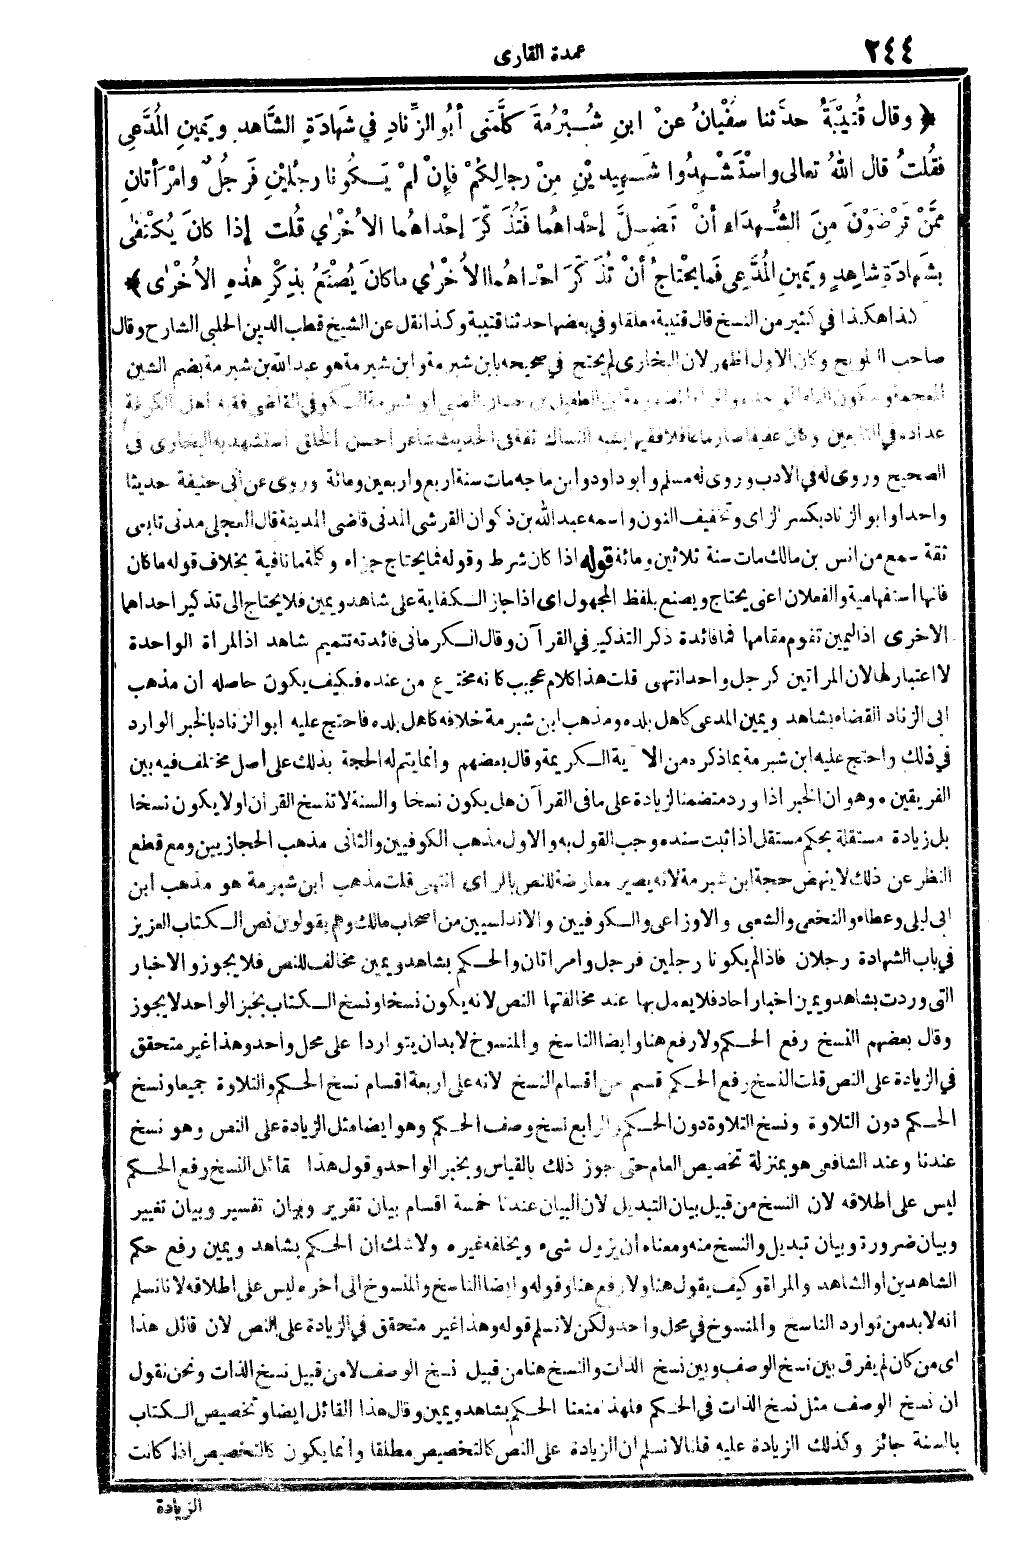 ٢٤٤
عمدة القارى
﴿ وقال قُتَيْبَةُ حدَّثنا سفْيانُ عنْ ابنِ شُبْرُمةَ كلَّمَنى أبُو الزِّنادِ فِي شَهادَةِ الشَّاهدِ ويَمِينِ المُدَّعِي
فقُلْتُ قال اللهُ تعالى واسْتَشْهِدُوا شَهِيدَيْنِ مِنْ رجالِكُمْ فإِنْ لمْ يَكُونا رجُلَيْنِ فَرجُلٌ وامْرَأتانِ
مِمَّنْ تَرْضَوْنَ مِنَ الشُّهداءِ أنْ تَضِلَّ إحْداهُما فَتُذَكِّرَ إحْداهُما الأُخْرٰي قُلت إذا كانَ يُكْتَفٰى
بشَهادَةِ شاهِدٍ ويَمِينِ المُدَّعِي فَما يحْتاجُ أنْ تُذَكِّرَ احْداهُما الأُخْرٰي ما كانَ يُصْنَعُ بذِكْرِ هٰذِهِ الأُخْرٰى ﴾
كذا هكذا في كثير من النسخ قال قتيبة معلقا وفي بعضها حدثنا قتيبة وكذا نقل عن الشيخ قطب الدين الحلبي الشارح وقال
صاحب التلويح وكان الاول اظهر لان البخارى لم يحتج في صحيحه بابن شبرمة وابن شبرمة هو عبدالله بن شبرمة بضم الشين
المعجمة وسكون الباء الموحدة وضم الراء ابن الطفيل بن حسان الضبى أبو شبرمة الكوفي القاضى فقيه اهل الكوفة
عداده في التابعين وكان عفيفا صارما عاقلا فقيها يشبه النساك ثقة في الحديث شاعرا حسن الخلق استشهد به البخارى في
الصحيح وروى له في الادب وروى له مسلم وأبو داود وابن ماجه مات سنة اربع واربعين ومائة وروى عن أبى حنيفة حديثا
واحدا وابو الزناد بكسر الزاى وتخفيف النون واسمه عبدالله بن ذكوان القرشى المدنى قاضى المدينة قال العجلى مدنى تابعى
ثقة سمع من انس بن مالك مات سنة ثلاثين ومائة قوله اذا كان شرط وقوله فما يحتاج جزاء وكلمة ما نافية بخلاف قوله ما كان
فانها استفهامية والفعلان اعنى يحتاج ويصنع بلفظ المجهول اى اذا جاز الكفاية على شاهد ويمين فلا يحتاج الى تذكير احداهما
الاخرى اذ اليمين تقوم مقامها فما فائدة ذكر التذكير في القرآن وقال الكرمانى فائدته تتميم شاهد اذ المراة الواحدة
لا اعتبار لها لان المراتين كرجل واحد انتهى قلت هذا كلام عجيب كانه مخترع من عنده فكيف يكون حاصله ان مذهب
ابى الزناد القضاء بشاهد ويمين المدعى كاهل بلده ومذهب ابن شبرمة خلافه كاهل بلده فاحتج عليه ابو الزناد بالخبر الوارد
في ذلك واحتج عليه ابن شبرمة بما ذكره من الاية الكريمة وقال بعضهم وانما يتم له الحجة بذلك على أصل مختلف فيه بين
الفريقين وهو ان الخبر اذا ورد متضمنا لزيادة على ما في القرآن هل يكون نسخا والسنة لا تنسخ القرآن اولا يكون نسخا
بل زيادة مستقلة بحكم مستقل اذا ثبت سنده وجب القول به والاول مذهب الكوفيين والثانى مذهب الحجازيين ومع قطع
النظر عن ذلك لا ينهض حجة ابن شبرمة لانه يصير معارضة للنص بالراى انتهى قلت مذهب ابن شبرمة هو مذهب ابن
ابى ليلى وعطاء والنخعى والشعبى والاوزاعى والكوفيين والاندلسيين من اصحاب مالك وهم يقولون نص الكتاب العزيز
في باب الشهادة رجلان فاذا لم يكونا رجلين فرجل وامراتان والحكم بشاهد ويمين مخالف للنص فلا يجوز والاخبار
التى وردت بشاهد ويمين اخبار احاد فلا يعمل بها عند مخالفتها النص لانه يكون نسخا ونسخ الكتاب بخبر الواحد لا يجوز
وقال بعضهم النسخ رفع الحكم ولا رفع هنا وايضا الناسخ والمنسوخ لابد ان يتواردا على محل واحد وهذا غير متحقق
في الزيادة على النص قلت النسخ رفع الحكم قسم من اقسام النسخ لانه على اربعة اقسام نسخ الحكم والتلاوة جميعا ونسخ
الحكم دون التلاوة ونسخ التلاوة دون الحكم والرابع نسخ وصف الحكم وهو ايضا مثل الزيادة على النص وهو نسخ
عندنا وعند الشافعى هو بمنزلة تخصيص العام حتى جوز ذلك بالقياس وبخبر الواحد وقول هذا القائل النسخ رفع الحكم
ليس على اطلاقه لان النسخ من قبيل بيان التبديل لان البيان عندنا خمسة اقسام بيان تقرير وبيان تفسير وبيان تغيير
وبيان ضرورة وبيان تبديل والنسخ منه ومعناه ان يزول شىء ويخلفه غيره ولا شك ان الحكم بشاهد ويمين رفع حكم
الشاهدين او الشاهد والمراة وكيف يقول هنا ولا رفع هنا وقوله وايضا الناسخ والمنسوخ الى اخره ليس على اطلاقه لانا نسلم
انه لابد من توارد الناسخ والمنسوخ في محل واحد ولكن لا نسلم قوله وهذا غير متحقق في الزيادة على النص لان قائل هذا
اى من كان لم يفرق بين نسخ الوصف وبين نسخ الذات والنسخ هنا من قبيل نسخ الوصف لا من قبيل نسخ الذات ونحن نقول
ان نسخ الوصف مثل نسخ الذات في الحكم فلهذا منعنا الحكم بشاهد ويمين وقال هذا القائل ايضا وتخصيص الكتاب
بالسنة جائز وكذلك الزيادة عليه قلنا لا نسلم ان الزيادة على النص كالتخصيص مطلقا وانما يكون كالتخصيص اذا كانت
الزيادة